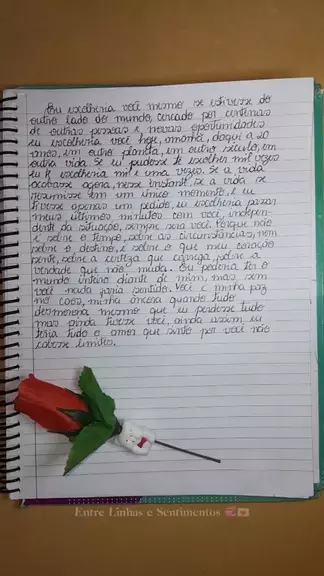 Eu escolheria você mesmo se estivesse do
outro lado do mundo, cercado por centenas
de outras pessoas e novas oportunidades
eu escolheria você hoje, amanhã, daqui a 20
anos, em outro planeta, em outro século, em
outra vida. Se eu pudesse te escolher mil vezes
eu te escolheria mil e uma vezes. Se a vida
acabasse agora, nesse instante, se a vida se
resumisse em um único momento, e eu
tivesse apenas um pedido, eu escolheria passar
meus últimos minutos com você, independen-
dente da situação, sempre seria você. Porque não
é sobre o tempo, sobre as circunstâncias, nem
sobre o destino, é sobre o que meu coração
sente, sobre a certeza que carrego, sobre a
verdade que não muda. Eu poderia ter o
mundo inteiro diante de mim, mas sem
você nada faria sentido. Você é minha paz
no caos, minha âncora quando tudo
desmorona mesmo que eu perdesse tudo
mas ainda tivesse você, ainda assim eu
teria tudo o amor que sinto por você não
cabe limites.
Entre Linhas e Sentimentos